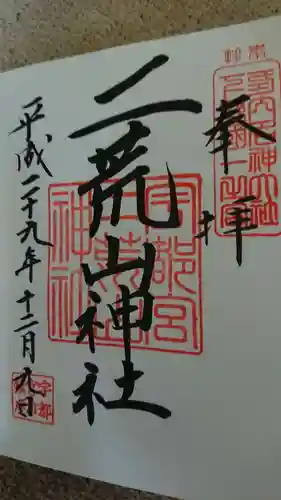 奉拝
二荒山神社
宇都宮二荒山神社
平成二十九年十二月九日